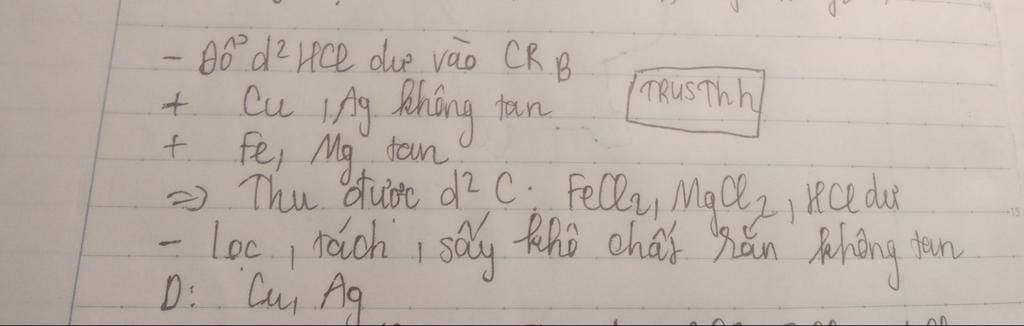 - Đổ d² HCl dư vào CR B
+ Cu, Ag không tan
TRUSThh
+ Fe, Mg tan
=> Thu được d² C: FeCl₂, MgCl₂, HCl dư
- lọc, tách, sấy khô chất rắn không tan
D: Cu, Ag